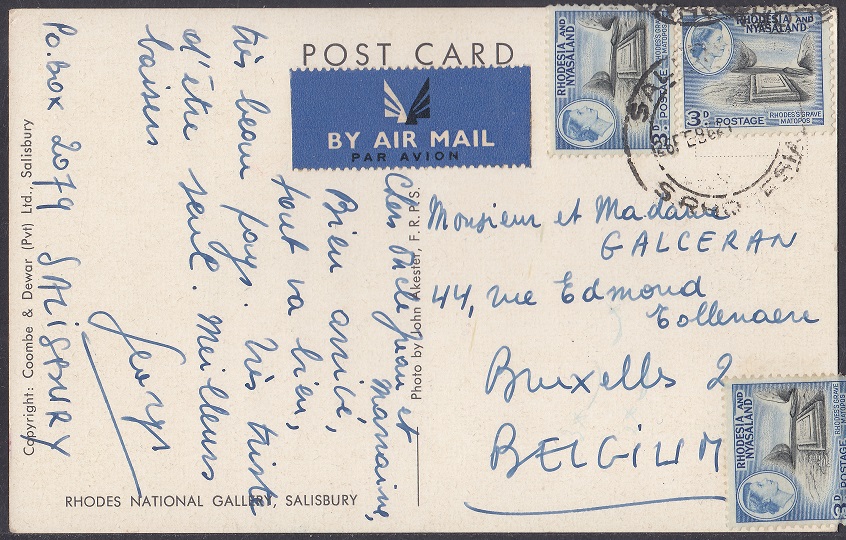 POST CARD
BY AIR MAIL
PAR AVION
RHODESIA AND
NYASALAND
RHODES'S GRAVE
MATOPOS
3D POSTAGE
RHODESIA AND
NYASALAND
3D POSTAGE
RHODES'S GRAVE
MATOPOS
Chers Oncle Jean et
Marraine,
Bien arrivé,
tout va bien,
très beau pays. Très triste
d'être seul. Meilleurs
baisers
Georges
P.O. Box 2079 SALISBURY
Monsieur et Madame
GALCERAN
44, rue Edmond
Tollenaere
Bruxelles 2
BELGIUM
RHODESIA AND
NYASALAND
RHODES'S GRAVE
MATOPOS
3D POSTAGE
Photo by John Akester, F.R.P.S.
Copyright: Coombe & Dewar (Pvt) Ltd., Salisbury
RHODES NATIONAL GALLERY, SALISBURY